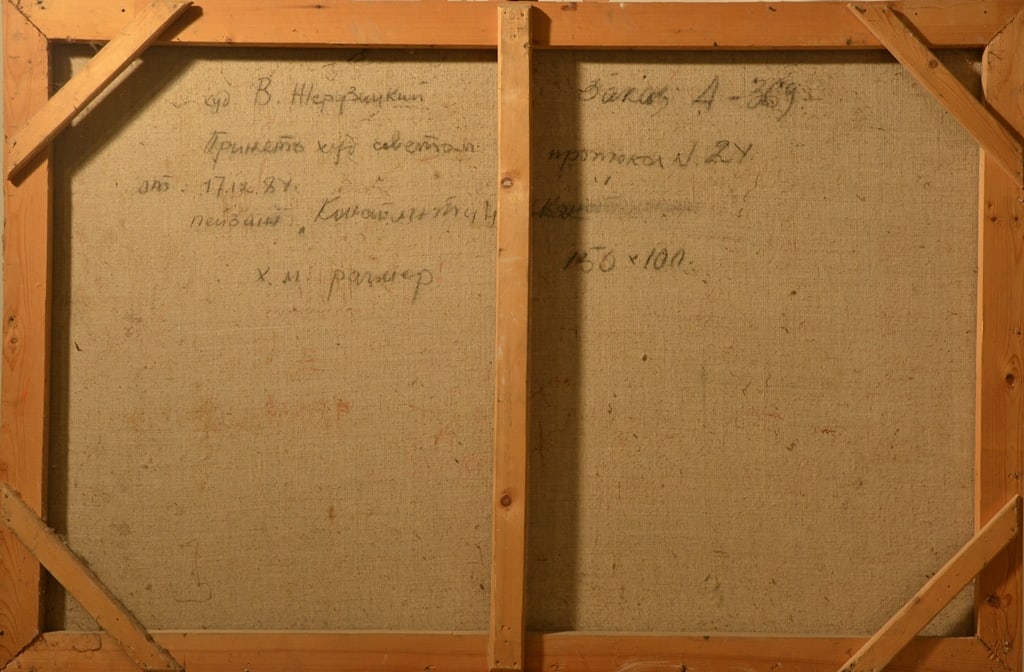 худ В. Жеравицкий Заказ Д-369
Принято худ советом протокол N. 24.
от. 17.12.84.
пейзаж
х. м. размер 150 × 100.